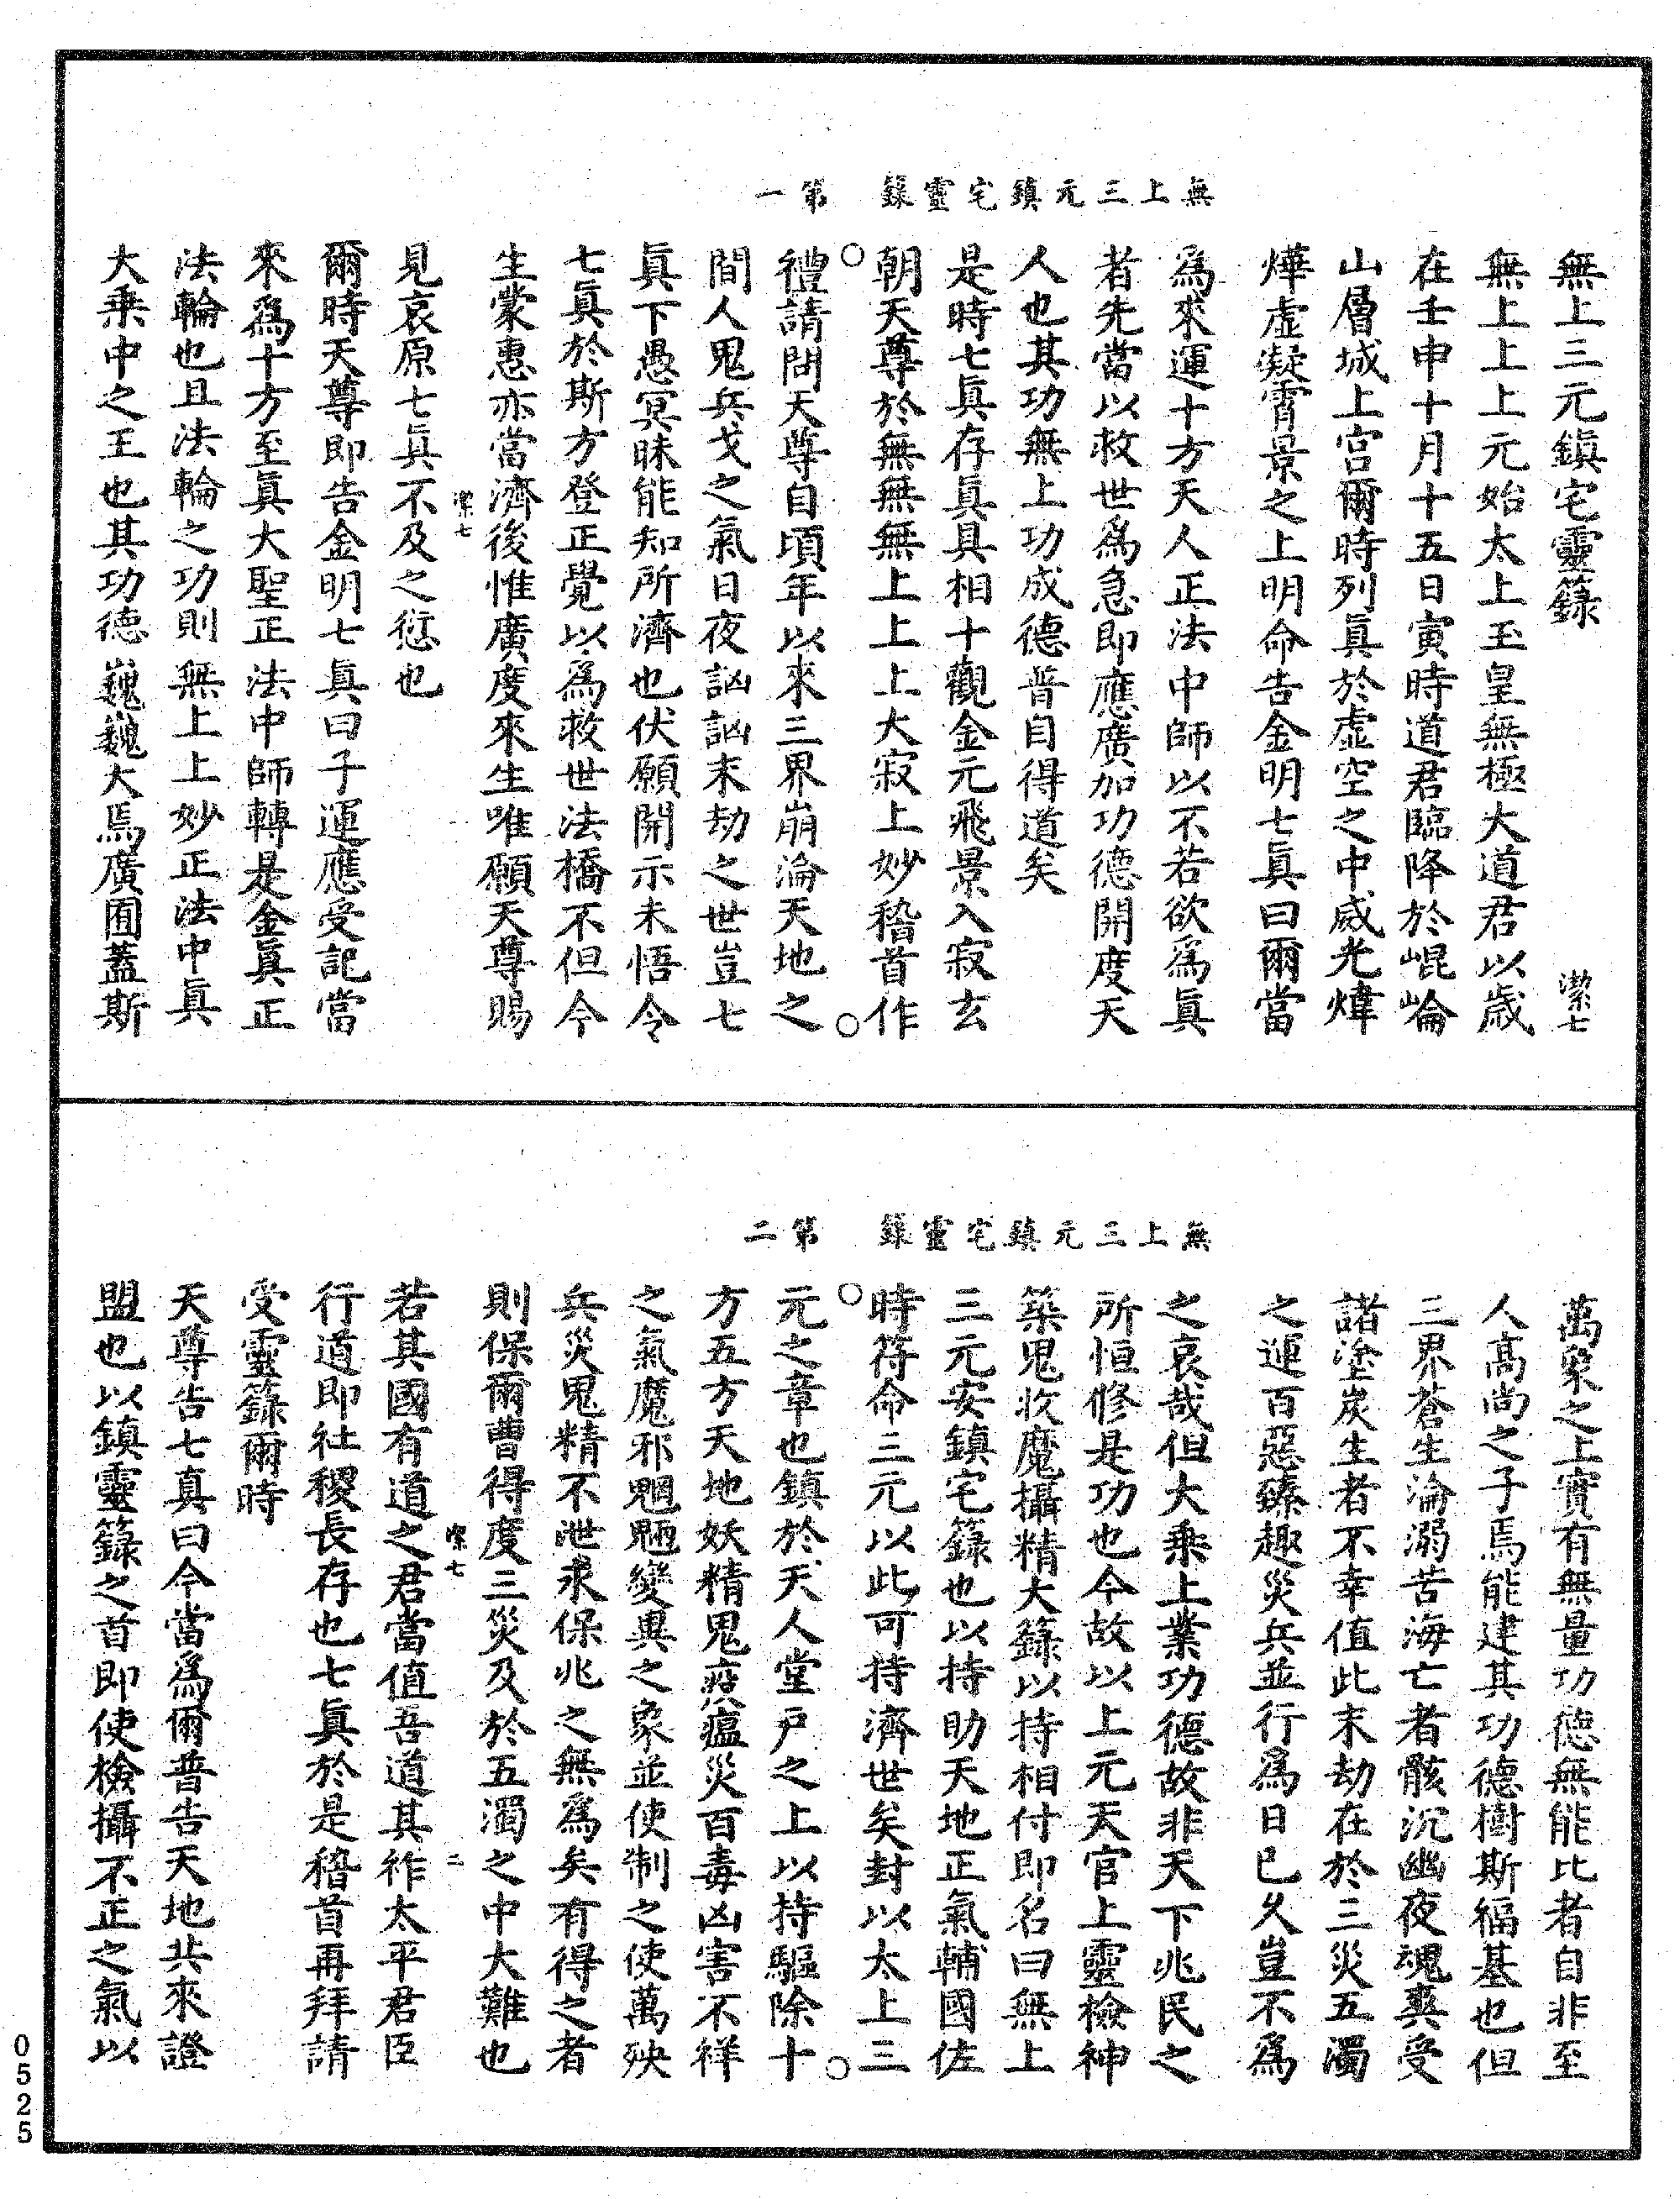 無上三元鎮宅靈籙　第一
無上三元鎮宅靈籙　潔七
無上上上元始太上玉皇無極大道君以歲
在壬申十月十五日寅時道君臨降於崐崘
山層城上宫爾時列眞於虛空之中威光煒
燁虛凝霄景之上明命告金明七眞曰爾當
爲來運十方天人正法中師以不若欲爲眞
者先當以救世爲急即應廣加功德開度天
人也其功無上功成德普自得道矣
是時七眞存眞具相十觀金元飛景入寂玄
朝天尊於無無無上上上大寂上妙稽首作
禮請問天尊自頃年以來三界崩淪天地之
間人鬼兵戈之氣日夜訩訩末劫之世豈七
眞下愚冥昧能知所濟也伏願開示未悟令
七眞於斯方登正覺以爲救世法橋不但今
生蒙惠亦當濟後惟廣度來生唯願天尊賜
潔七
見哀原七眞不及之愆也
爾時天尊即告金明七眞曰子運應受記當
來爲十方至眞大聖正法中師轉是金眞正
法輪也且法輪之功則無上上妙正法中眞
大乗中之王也其功德巍巍大焉廣囿蓋斯
無上三元鎮宅靈籙　第二
萬象之上實有無量功德無能比者自非至
人髙尚之子焉能建其功德樹斯福基也但
三界蒼生淪溺苦海亡者骸沉幽夜魂爽受
諸塗炭生者不幸值此末劫在於三災五濁
之運百惡臻趣災兵並行爲日已久豈不爲
之哀哉但大乗上業功德故非天下兆民之
所恒修是功也今故以上元天官上靈檢神
築鬼收魔攝精大籙以持相付即名曰無上
三元安鎮宅籙也以持助天地正氣輔國佐
時符命三元以此可持濟世矣封以太上三
元之章也鎮於天人堂戸之上以持驅除十
方五方天地妖精鬼疫瘟災百毒凶害不祥
之氣魔邪魍魎變異之象並使制之使萬殃
兵災鬼精不泄永保兆之無爲矣有得之者
則保爾曹得度三災及於五濁之中大難也
潔七　二
若其國有道之君當值吾道其祚太平君臣
行道即社稷長存也七眞於是稽首再拜請
受靈籙爾時
天尊告七真曰今當爲爾普告天地共來證
盟也以鎮靈籙之首即使檢攝不正之氣以
0525